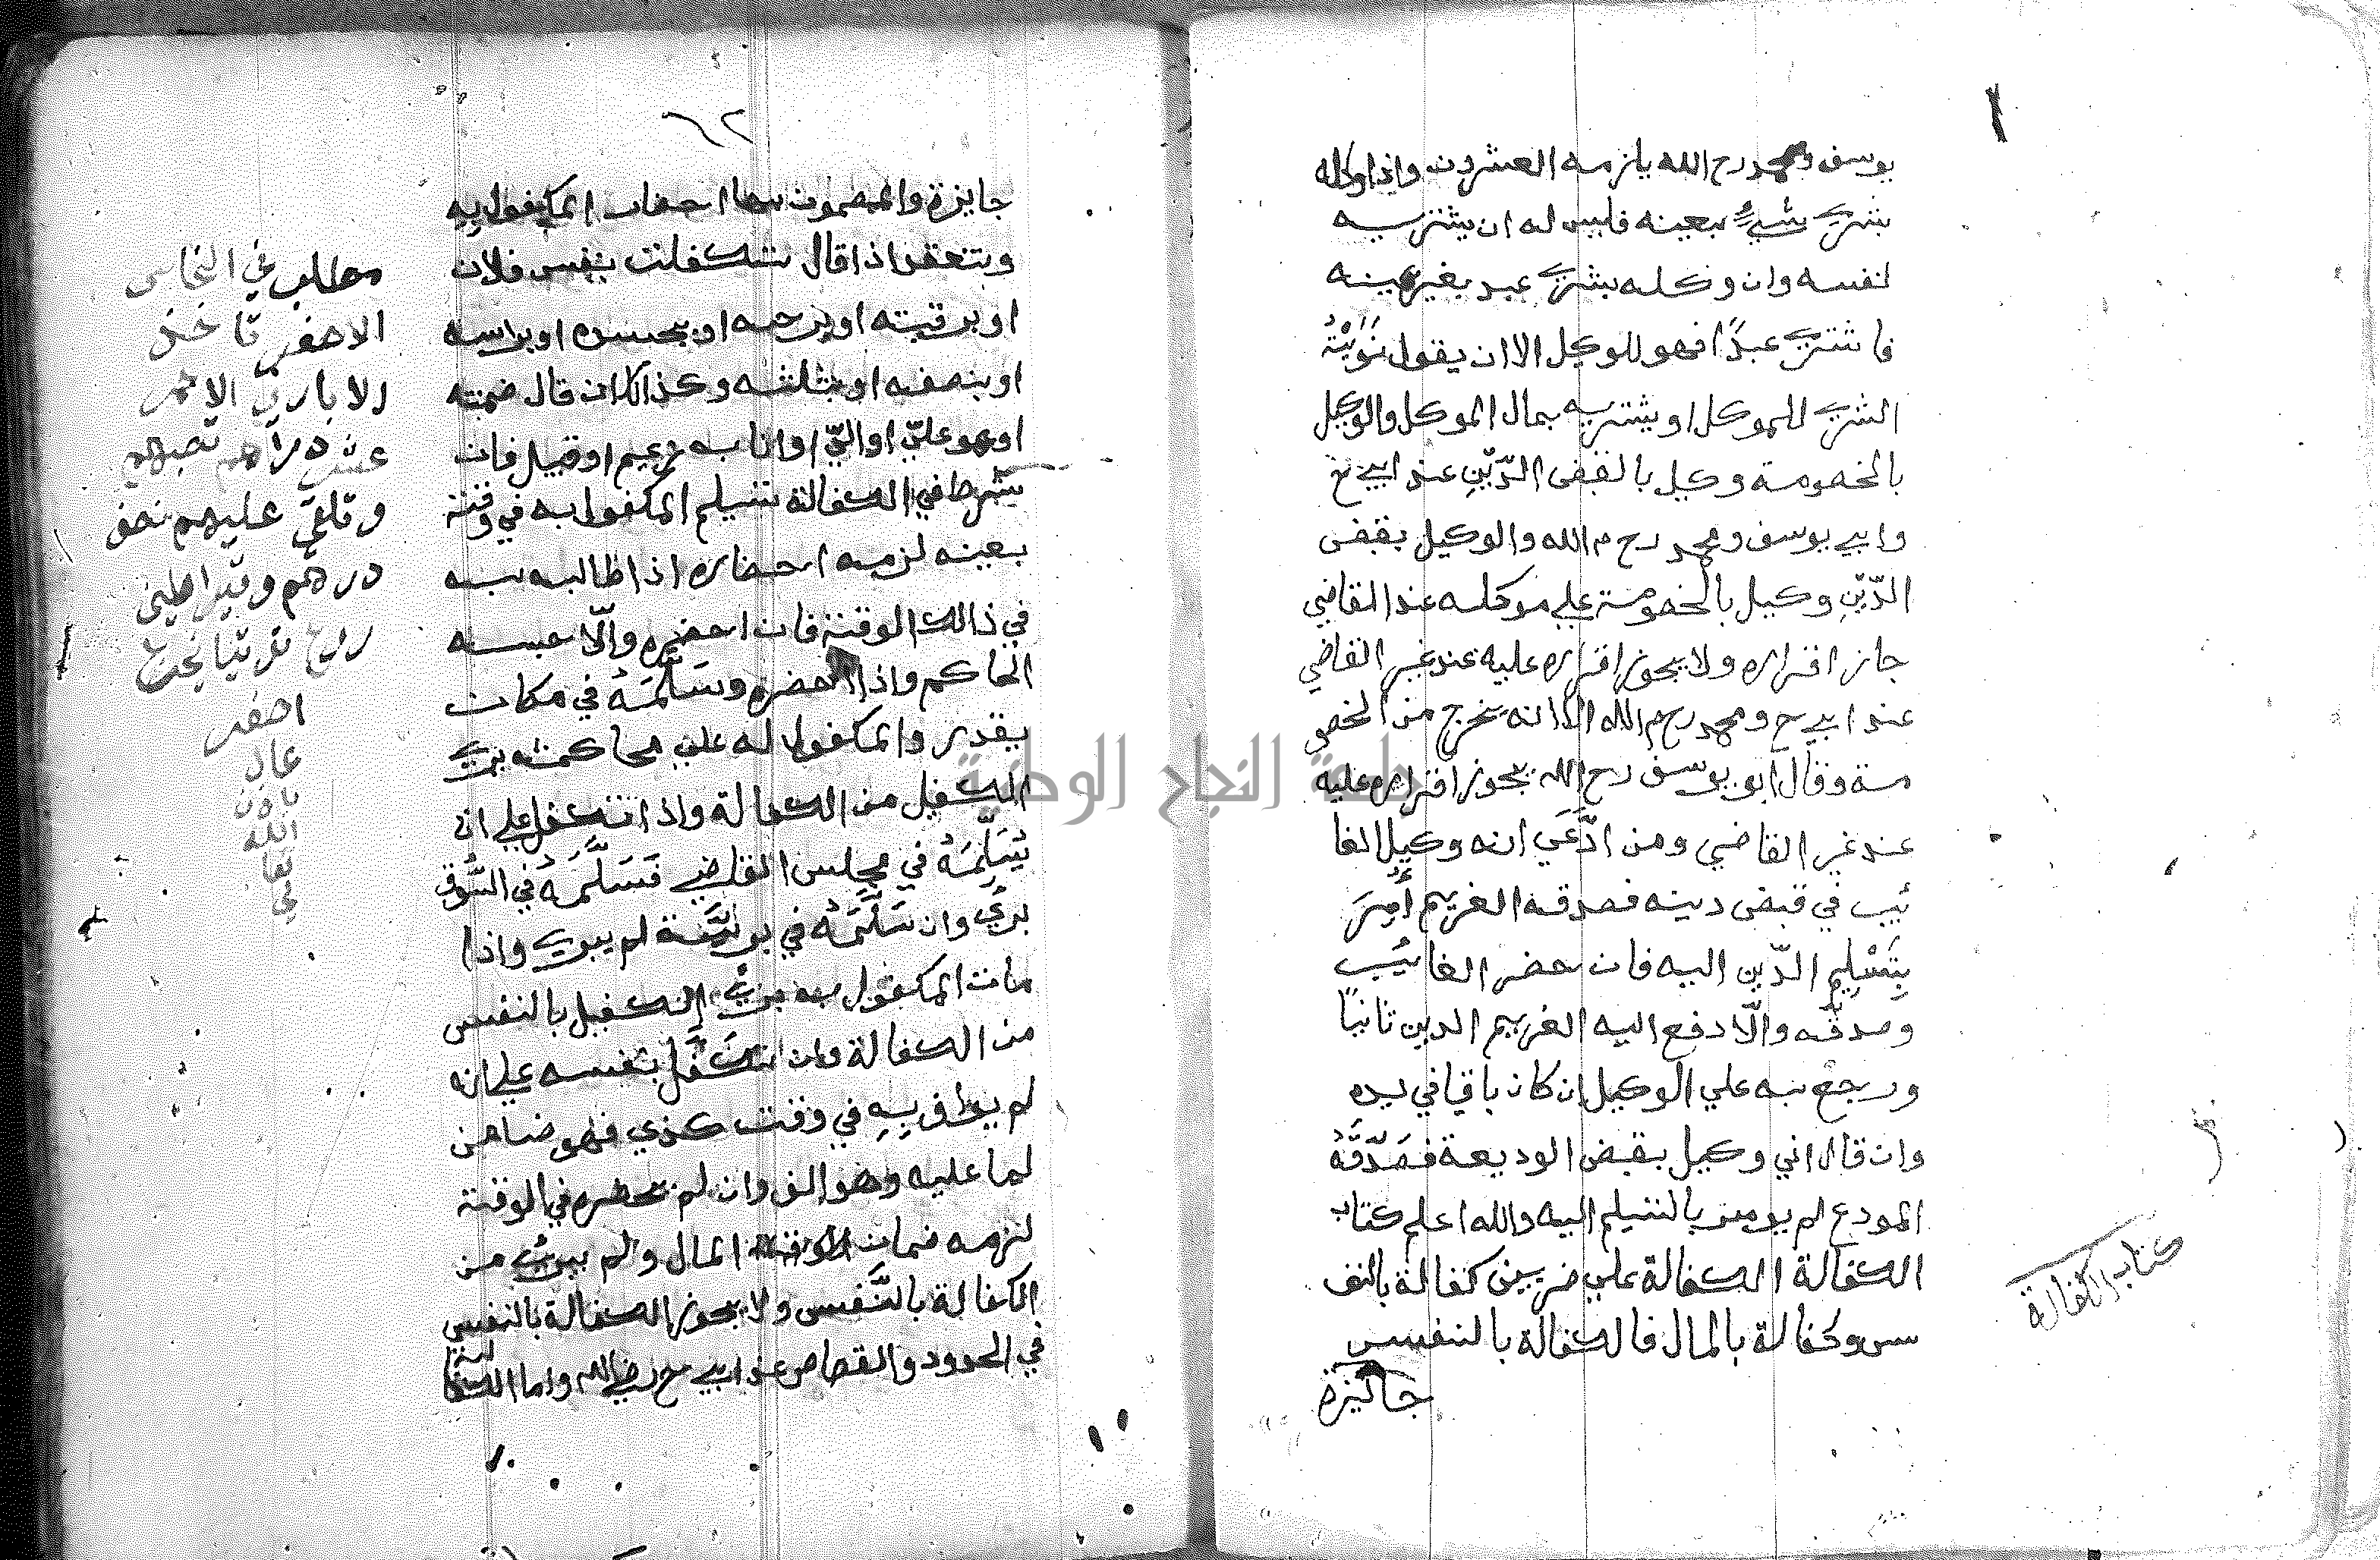 يوسف ومحمد رح الله يلزمه العشرون واذا وكله
بشري شيءٍ بعينه فليس له ان يشتريه
لنفسه وان وكله بشري عبد بغير عينه
فاشتري عبدًا فهو للوكيل الا ان يقول نَوَيْتُ
الشري للموكل او يشتريه بمال الموكل والوكيل
بالخصومة وكيل بالقبض الدّيْنِ عند ابي ح
وابي يوسف ومحمد رح م الله والوكيل بقبض
الدّيْنِ وكيل بالخصومة علي موكله عند القاضي
جاز اقراره ولا يجوز اقراره عليه عند غير القاضي
عند ابي ح ومحمد رح م الله الا انه يخرج من الخصو
مة وقال ابو يوسف رح الله يجوز اقراره عليه
عند غير القاضي ومن ادَّعَي انه وكيل الغا
ئيب في قبض دينه فصدقه الغريم أُمِرَ
بِتَسْلِيمِ الدّين اليه فان حضر الغائيب
وصدقه والّا دفع اليه الغريم الدين ثانيًا
ورجع به علي الوكيل ان كان باقيا في يده
وان قال اني وكيل بقبض الوديعة فصَدَّقَهُ
المودع لم يومر بالتسليم اليه والله اعلم كتاب
الكفالة الكفالة علي ضربين كفالة بالنف
س وكفالة بالمال فالكفالة بالنفس
جائزة
كتاب الكفالة
٦٢
جايزة والمضمون بها احضار المكفول به
وينعقد اذا قال تكفلت بنفس فلان
او برقبته او بروحه او بجسده او براسه
او بنصفه او بثلثه وكذالك ان قال ضمنته
او هو عليّ او اليّ او انا به زعيم او قبيل فان
شرط في الكفالة تسليم المكفول به في وقت
بعينه لزمه احضاره اذا طالبه به
في ذالك الوقت فان احضره والّا حبسه
الحاكم واذا احضره وسَلَّمَهُ في مكان
يقدر والمكفول له علي محاكمته بري
الكفيل من الكفالة واذا تكفل علي ان
يُسَلِّمَهُ في مجلس القاضي فَسَلَّمَهُ في السُّوق
بريَ وان سَلَّمَهُ في بريَّة لم يبري واذا
مات المكفول به بريَ الكفيل بالنفس
من الكفالة وان تكَفَّلَ بنفسه علي انه
لم يواف بِهِ في وقت كذي فهو ضامن
لما عليه وهو الف وان لم يحضره في الوقت
لزمه ضمان المال ولم يبري من
الكفالة بالنَّفس ولا يجوز الكفالة بالنفس
في الحدود والقصاص عند ابي ح رضي الله واما الكفا
لة
مطلب في النحاس
الاصفر تاخذ
عشر دراهم
وتلقي عليهم نصف
درهم وقيراطين
اصفر
عال
باذن
الله
تعا
لي
جامعة النجاح الوطنية